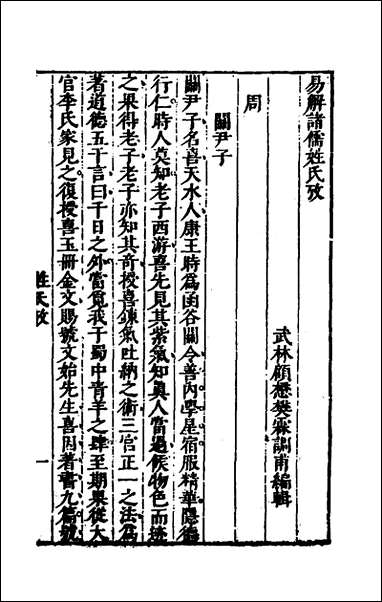 易解諸儒姓氏攷
武林顧懋樊霖調甫編輯
周
關尹子
關尹子名喜天水人康王時為函谷關令善內學星宿服精華隱德
行仁時人莫知老子西游喜先見其紫氣知真人當過候物色而迹
之果得老子老子亦知其奇授喜鍊氣吐納之術三官正一之法為
著道德五千言曰千日之外當覓我于蜀中青羊之肆至期果從大
官李氏家見之復授喜玉冊金文賜號文始先生喜因著書九篇號
姓氏攷
一